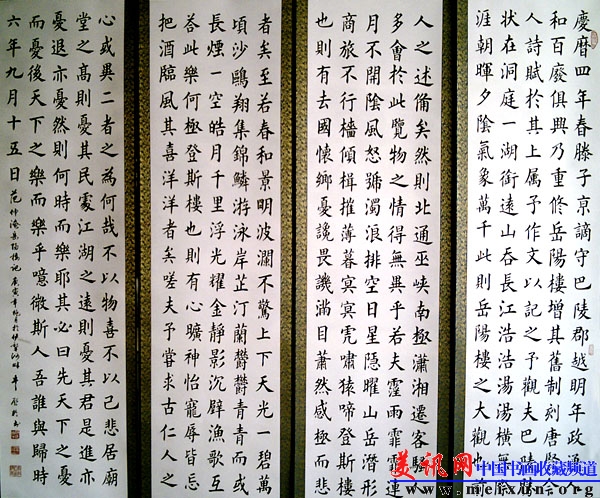 慶曆四年春滕子京謫守巴陵郡越明年政通人
和百廢俱興乃重修岳陽樓增其舊制刻唐賢今
人詩賦於其上属予作文以記之予觀夫巴陵勝
狀在洞庭一湖銜遠山吞長江浩浩湯湯橫無際
涯朝暉夕陰氣象萬千此則岳陽樓之大觀也前
人之述備矣然則北通巫峽南極瀟湘遷客騷人
多會於此覽物之情得無異乎若夫霪雨霏霏連
月不開陰風怒號濁浪排空日星隱曜山岳潛形
商旅不行檣傾楫摧薄暮冥冥虎嘯猿啼登斯樓
也則有去國懷鄉憂讒畏譏滿目蕭然感極而悲
者矣至若春和景明波瀾不驚上下天光一碧萬
頃沙鷗翔集錦鱗游泳岸芷汀蘭鬱鬱青青而或
長煙一空皓月千里浮光耀金靜影沉璧漁歌互
答此樂何極登斯樓也則有心曠神怡寵辱皆忘
把酒臨風其喜洋洋者矣嗟夫予嘗求古仁人之
心或異二者之為何哉不以物喜不以己悲居廟
堂之高則憂其民處江湖之遠則憂其君是進亦
憂退亦憂然則何時而樂耶其必曰先天下之憂
而憂後天下之樂而樂乎噫微斯人吾誰與歸時
六年九月十五日
范仲淹岳陽樓記
美讯网 中国书画收藏频道
www.meixun.org